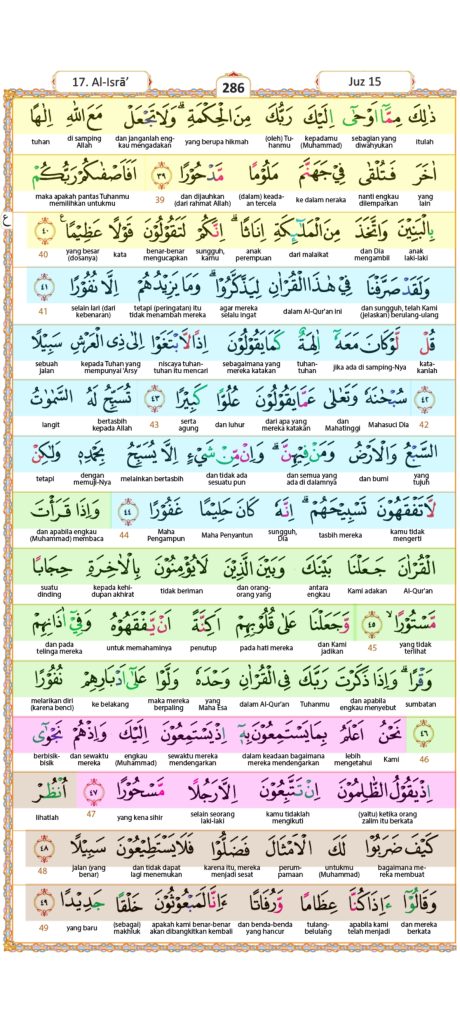 17. Al-Isrā’
286
Juz 15
ذٰلِكَ مِمَّآ اَوْحٰٓى اِلَيْكَ رَبُّكَ مِنَ الْحِكْمَةِۗ وَلَا تَجْعَلْ مَعَ اللّٰهِ اِلٰهًا
itulah sebagian yang diwahyukan kepadamu (Muhammad) (oleh) Tuhanmu yang berupa hikmah dan janganlah engkau mengadakan di samping Allah tuhan
اٰخَرَ فَتُلْقٰى فِيْ جَهَنَّمَ مَلُوْمًا مَّدْحُوْرًا ۝٣٩ اَفَاَصْفٰىكُمْ رَبُّكُمْ
yang lain nanti engkau dilemparkan ke dalam neraka (keadaan) tercela dan dijauhkan (dari rahmat Allah) 39 maka apakah pantas Tuhanmu memilihkan untukmu
ع
بِالْبَنِيْنَ وَاتَّخَذَ مِنَ الْمَلٰۤىِٕكَةِ اِنَاثًاۗ اِنَّكُمْ لَتَقُوْلُوْنَ قَوْلًا عَظِيْمًا ۝٤٠
anak laki-laki dan Dia mengambil dari malaikat anak perempuan sungguh, kamu benar-benar mengucapkan kata yang besar (dosanya) 40
وَلَقَدْ صَرَّفْنَا فِيْ هٰذَا الْقُرْاٰنِ لِيَذَّكَّرُوْاۗ وَمَا يَزِيْدُهُمْ اِلَّا نُفُوْرًا ۝٤١
dan sungguh, telah Kami (jelaskan) berulang-ulang dalam Al-Qur'an ini agar mereka selalu ingat tetapi (peringatan) itu tidak menambah mereka selain lari (dari kebenaran) 41
قُلْ لَّوْ كَانَ مَعَهٗٓ اٰلِهَةٌ كَمَا يَقُوْلُوْنَ اِذًا لَّابْتَغَوْا اِلٰى ذِى الْعَرْشِ سَبِيْلًا
katakanlah jika ada di samping-Nya tuhan-tuhan sebagaimana yang mereka katakan niscaya tuhan-tuhan itu mencari kepada Tuhan yang mempunyai 'Arsy sebuah jalan
۝٤٢ سُبْحٰنَهٗ وَتَعٰلٰى عَمَّا يَقُوْلُوْنَ عُلُوًّا كَبِيْرًا ۝٤٣ تُسَبِّحُ لَهُ السَّمٰوٰتُ
42 Mahasuci Dia dan Mahatinggi dari apa yang mereka katakan dan luhur serta agung 43 bertasbih kepada Allah langit
السَّبْعُ وَالْاَرْضُ وَمَنْ فِيْهِنَّۗ وَاِنْ مِّنْ شَيْءٍ اِلَّا يُسَبِّحُ بِحَمْدِهٖ وَلٰكِنْ
yang tujuh dan bumi dan semua yang ada di dalamnya dan tidak ada sesuatu pun melainkan bertasbih dengan memuji-Nya tetapi
لَّا تَفْقَهُوْنَ تَسْبِيْحَهُمْۗ اِنَّهٗ كَانَ حَلِيْمًا غَفُوْرًا ۝٤٤ وَاِذَا قَرَأْتَ
kamu tidak mengerti tasbih mereka sungguh, Dia Maha Penyantun Maha Pengampun 44 dan apabila engkau (Muhammad) membaca
الْقُرْاٰنَ جَعَلْنَا بَيْنَكَ وَبَيْنَ الَّذِيْنَ لَا يُؤْمِنُوْنَ بِالْاٰخِرَةِ حِجَابًا
Al-Qur'an Kami adakan antara engkau dan orang-orang yang tidak beriman kepada kehidupan akhirat suatu dinding
مَّسْتُوْرًاۙ ۝٤٥ وَّجَعَلْنَا عَلٰى قُلُوْبِهِمْ اَكِنَّةً اَنْ يَّفْقَهُوْهُ وَفِيْٓ اٰذَانِهِمْ
yang tidak terlihat 45 dan Kami jadikan pada hati mereka penutup untuk memahaminya dan pada telinga mereka
وَقْرًاۗ وَاِذَا ذَكَرْتَ رَبَّكَ فِى الْقُرْاٰنِ وَحْدَهٗ وَلَّوْا عَلٰٓى اَدْبَارِهِمْ نُفُوْرًا
sumbatan dan apabila engkau menyebut Tuhanmu dalam Al-Qur'an Yang Maha Esa maka mereka berpaling ke belakang melarikan diri (karena benci)
۝٤٦ نَحْنُ اَعْلَمُ بِمَا يَسْتَمِعُوْنَ بِهٖٓ اِذْ يَسْتَمِعُوْنَ اِلَيْكَ وَاِذْ هُمْ نَجْوٰٓى
46 Kami lebih mengetahui dalam keadaan bagaimana mereka mendengarkan sewaktu mereka mendengarkan engkau (Muhammad) dan sewaktu mereka berbisik-bisik
اِذْ يَقُوْلُ الظّٰلِمُوْنَ اِنْ تَتَّبِعُوْنَ اِلَّا رَجُلًا مَّسْحُوْرًا ۝٤٧ اُنْظُرْ
(yaitu) ketika orang zalim itu berkata kamu tidaklah mengikuti selain seorang laki-laki yang kena sihir 47 lihatlah
كَيْفَ ضَرَبُوْا لَكَ الْاَمْثَالَ فَضَلُّوْا فَلَا يَسْتَطِيْعُوْنَ سَبِيْلًا ۝٤٨
bagaimana mereka membuat untukmu (Muhammad) perumpamaan karena itu, mereka menjadi sesat dan tidak dapat lagi menemukan jalan (yang benar) 48
وَقَالُوْٓا ءَاِذَا كُنَّا عِظَامًا وَّرُفَاتًا ءَاِنَّا لَمَبْعُوْثُوْنَ خَلْقًا جَدِيْدًا ۝٤٩
dan mereka berkata apabila kami telah menjadi tulang-belulang dan benda-benda yang hancur apakah kami benar-benar akan dibangkitkan kembali (sebagai) makhluk yang baru 49